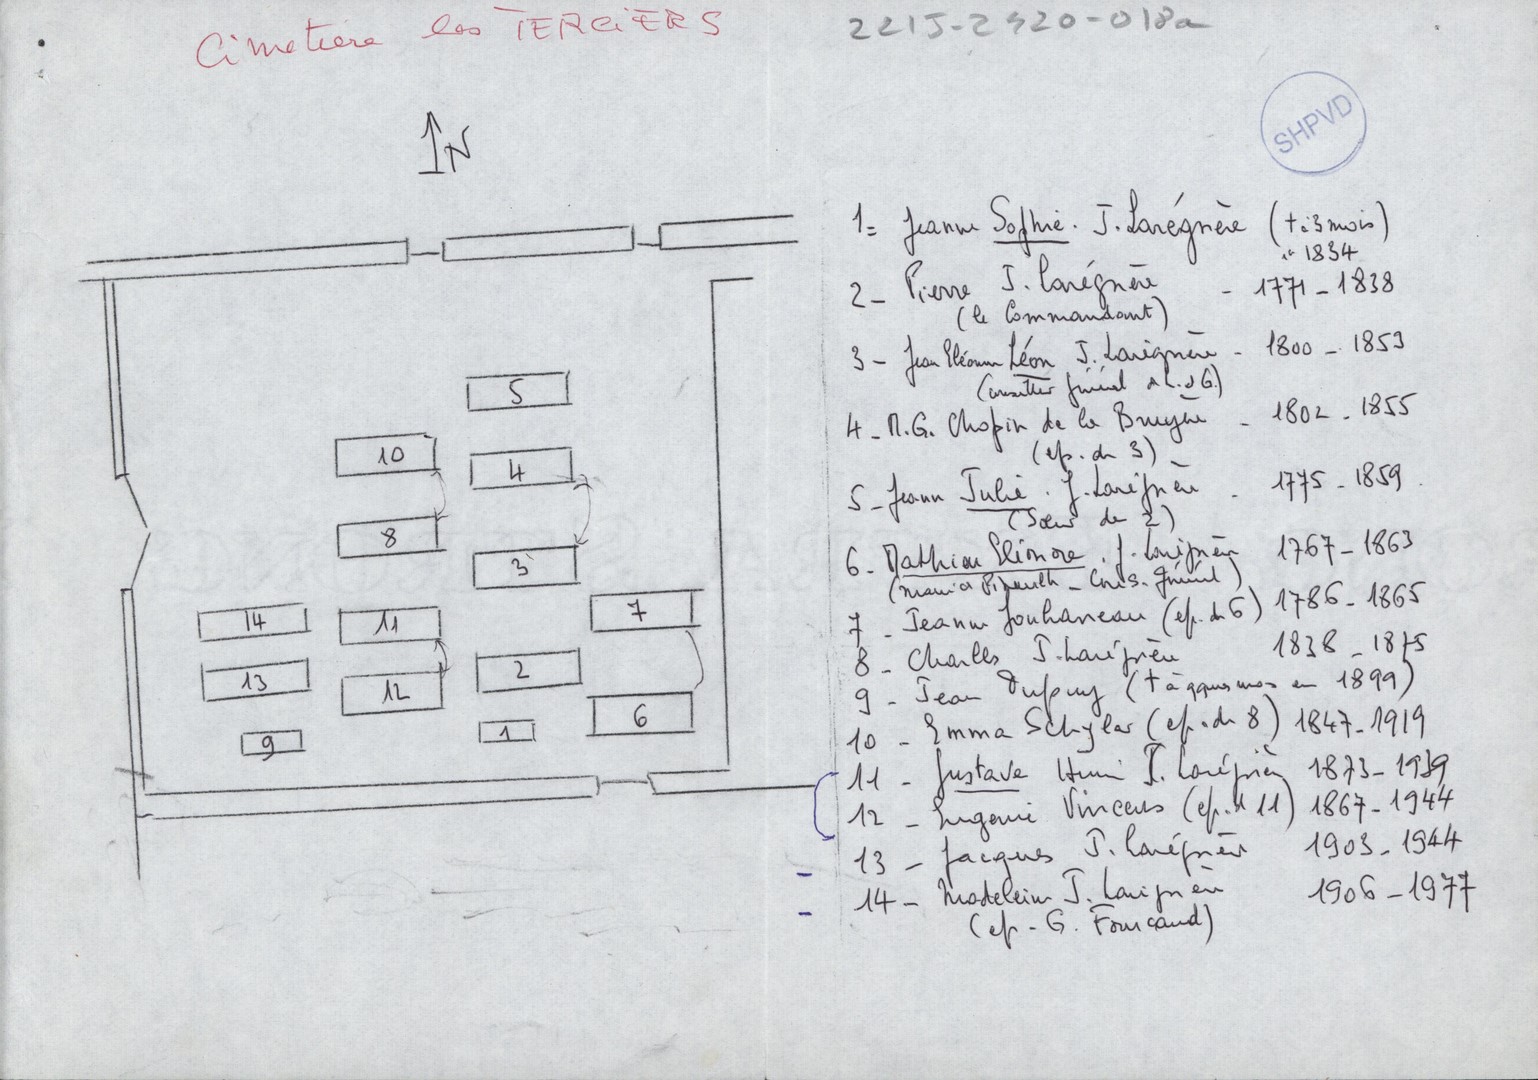 Cimetière les TERCIERS
22IJ-2420-018a
SHPVD
N
5
10
4
8
3
7
14
11
13
12
2
6
9
1
1= Jeanne Sophie. J. Larégnère († à 3 mois)
in 1834
2_ Pierre J. Larégnère - 1771_1838
(le Commandant)
3_ Jean Eléonore Léon J. Larégnère - 1800_1853
(conseiller général de L. et G.)
4_ M.G. Chopin de la Bruyère - 1802_1855
(ép. du 3)
5_ Jeanne Julie. J. Larégnère - 1775_1859.
(Sœur de 2)
6_ Mathieu Eléonore. J. Larégnère 1767_1863
(maire - Cons. Général)
7_ Jeanne Jouhaneau (ép. du 6) 1786_1865
8_ Charles J. Larégnère 1838_1875
9_ Jean Dupuy († à qques mois en 1899)
10_ Emma Schyler (ép. du 8) 1847_1919
11_ Gustave Henri J. Larégnère 1873_1939
12_ Eugénie Vincens (ép. d 11) 1867_1944
13_ Jacques J. Larégnère 1903_1944
14_ Madeleine J. Larégnère 1906_1977
(ép. G. Fourcaud)